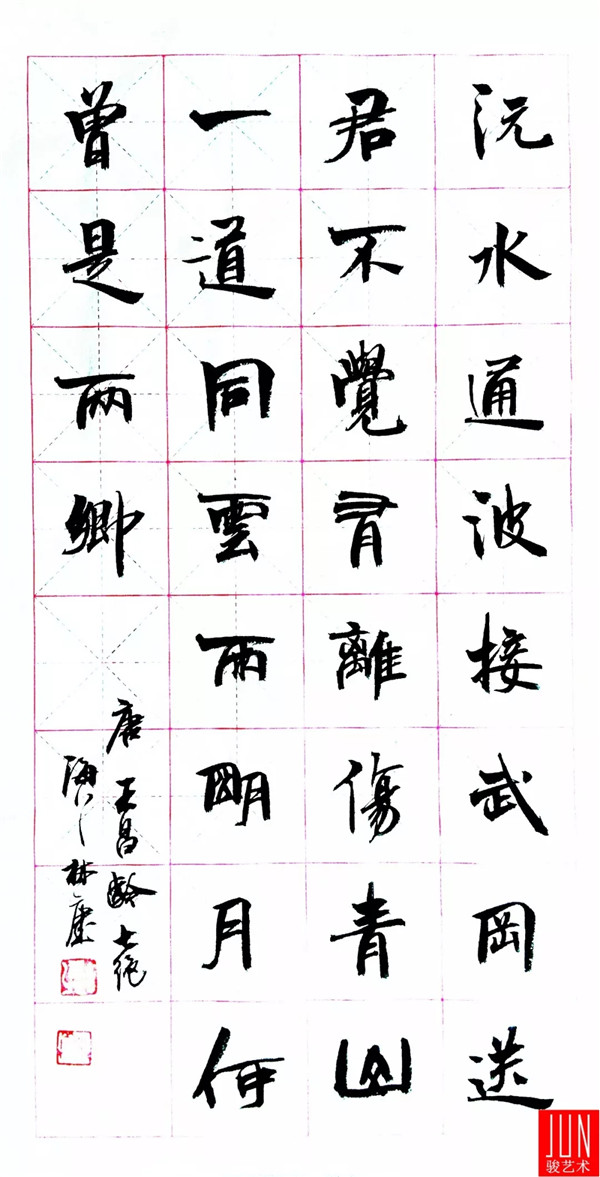 沅水通波接武岡送
君不覺有離傷青山
一道同雲雨朙月何
曾是兩鄉
唐王昌齡七絕
JUN
骏艺术